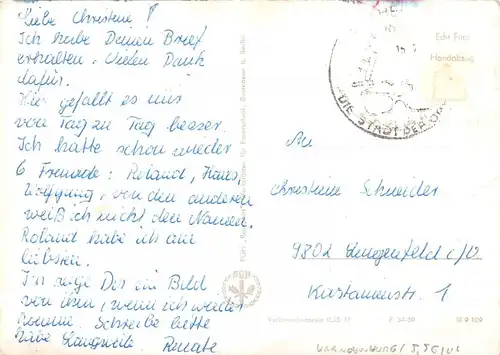 Liebe Christine!
Ich habe Deinen Brief
erhalten. Vielen Dank
dafür.
Hier gefällt es mir
von Tag zu Tag besser.
Ich hatte schon wieder
6 Freunde: Roland, Hans,
Wolfgang, von den anderen
weiß ich nicht den Namen.
Roland habe ich am
liebsten.
Ich zeige Dir ein Bild
von ihm, wenn ich wieder
komme. Schreibe bitte
habe Langweile. Renate
Echt Foto
Handabzug
DIE STADT DER
An
Christine Schneider
9802 Lengenfeld i/V
Kastanienstr. 1